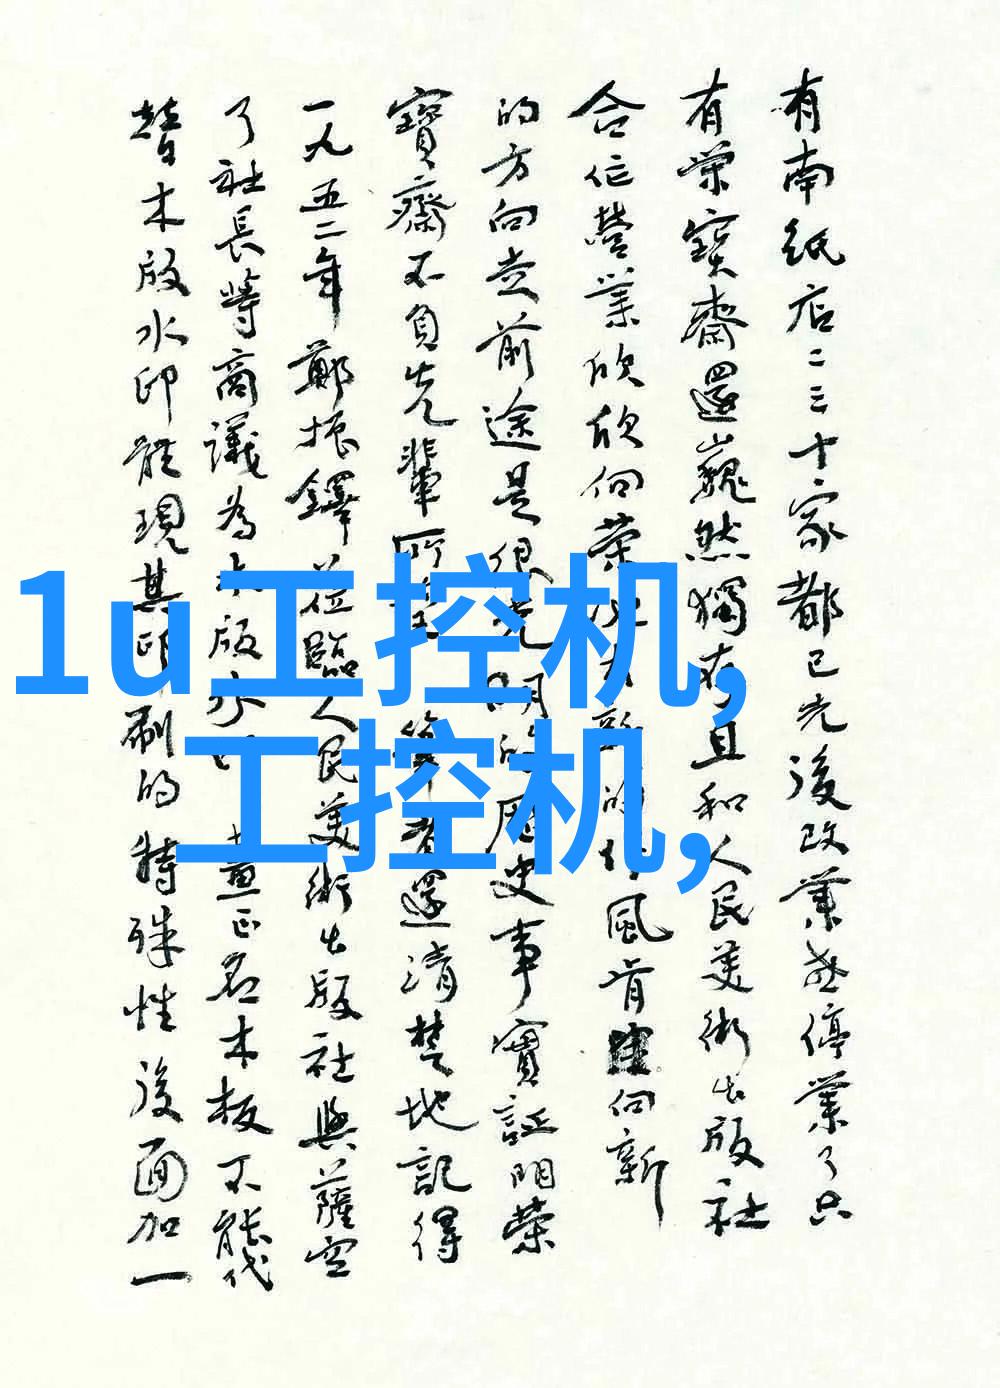 有南纸店二三十家都已先後改業或停業了只
有荣寶齋還巍然獨存且和人民美術出版社
合作營業欣欣向荣 的作風肯 向新
的方向走前途是很光明的歷史事實証明荣
寶齋不負先輩所 筆者還清楚地記得
一九五二年鄭振鐸莅臨人民美術出版社與薩空
了社長等商議為木版水印 畫正名木板不能代
替木版水印能現其印刷的特殊性後面加一
1u工控机,
工控机,